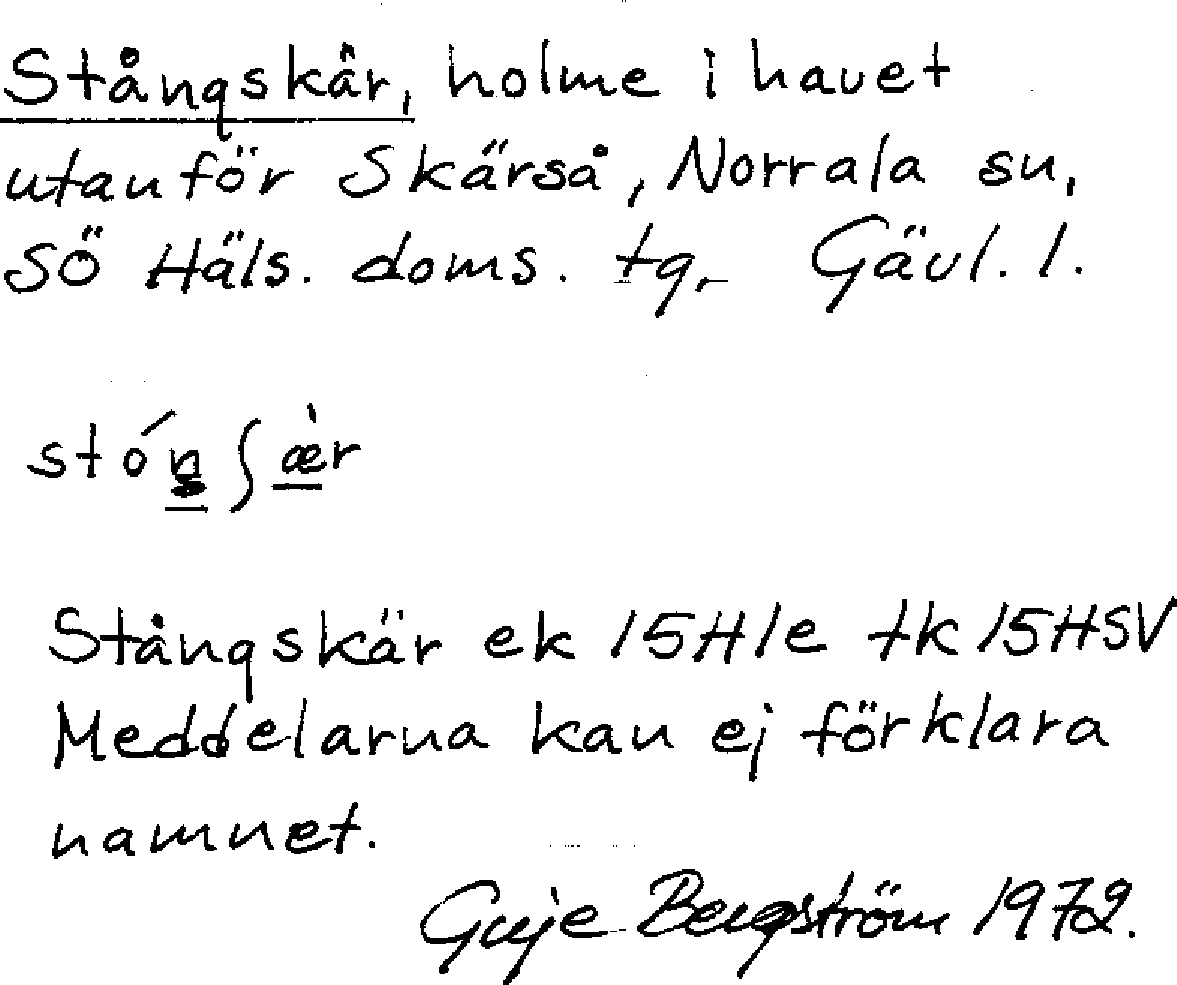 Stångskär, holme i havet
utanför Skärså, Norrala sn,
SÖ Häls. doms. tg. Gävl. l.
stóŋʃæ̀r
Stångskär ek 15H1e tk 15HSV
Meddelarna kan ej förklara
namnet.
Guje Bergström 1972.